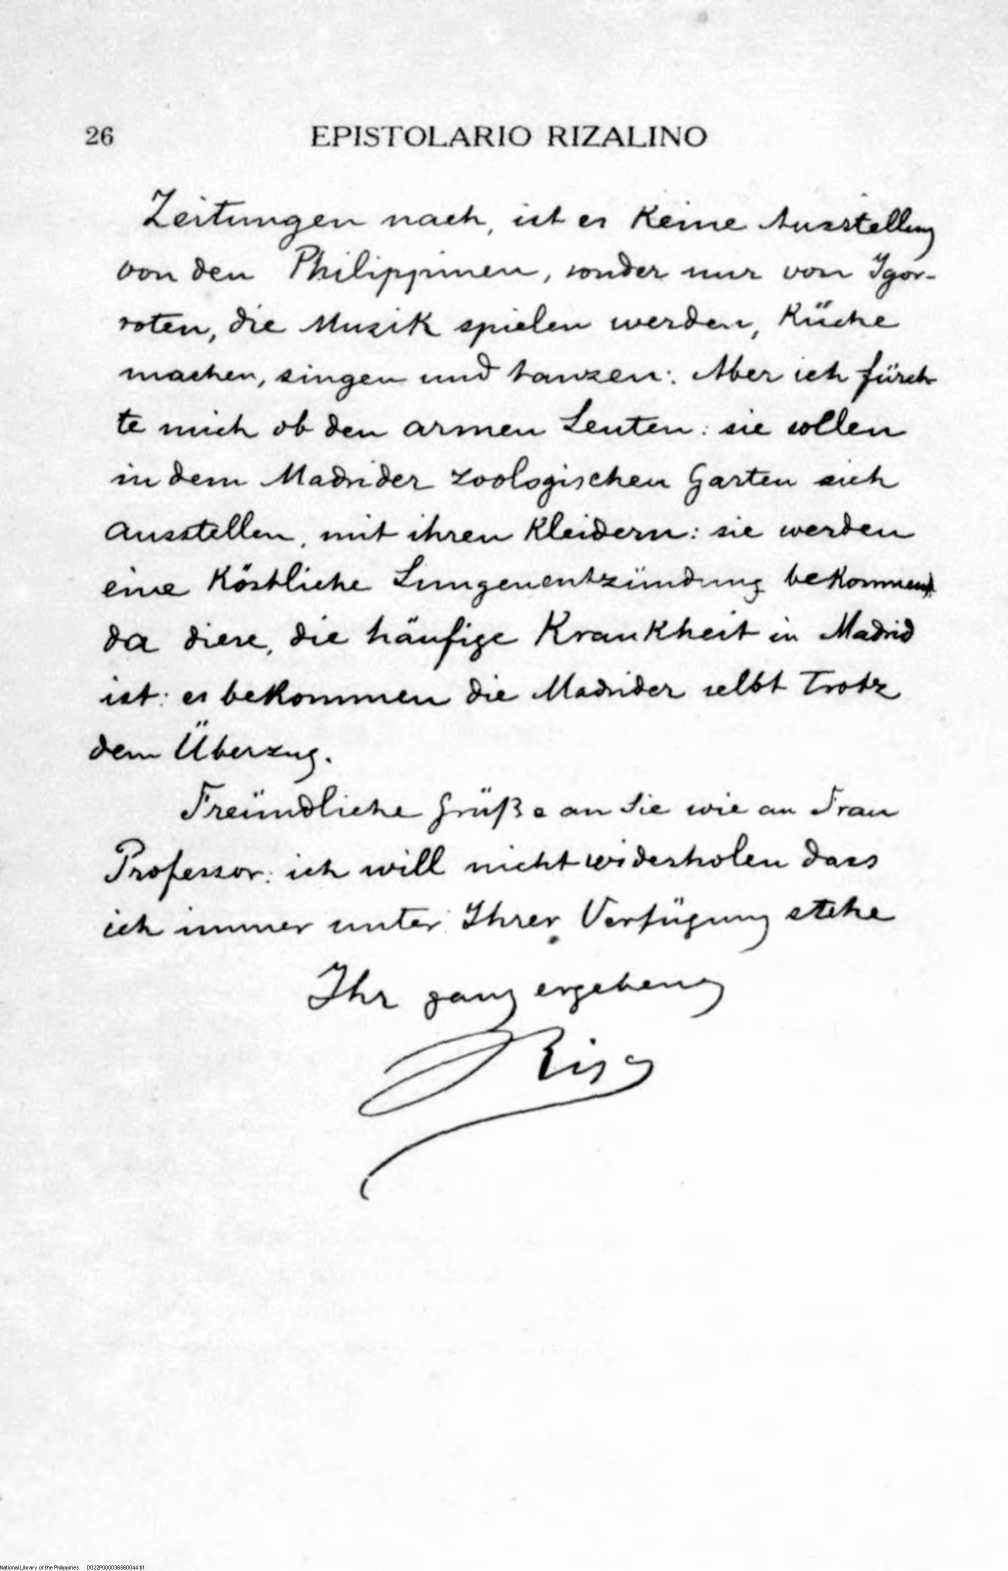 26 EPISTOLARIO RIZALINO
Zeitungen nach, ist es Keine Ausstellung
von den Philippinen, sonder nur von Igor-
roten, die Musik spielen werden, Küche
machen, singen und tanzen: Aber ich fürch-
te mich ob den armen Leuten: sie sollen
in dem Madrider zoologischen Garten sich
ausstellen, mit ihren Kleidern: sie werden
eine Köstliche Lungenentzündung bekommen
da diese, die häufige Krankheit in Madrid
ist: es bekommen die Madrider selbt Trotz
dem Überzug.
Freündliche Grüße an Sie wie an Frau
Professor: ich will nicht widerholen dass
ich immer unter Ihrer Verfügung stehe
Ihr ganz ergebenz
Riz
National Library of the Philippines